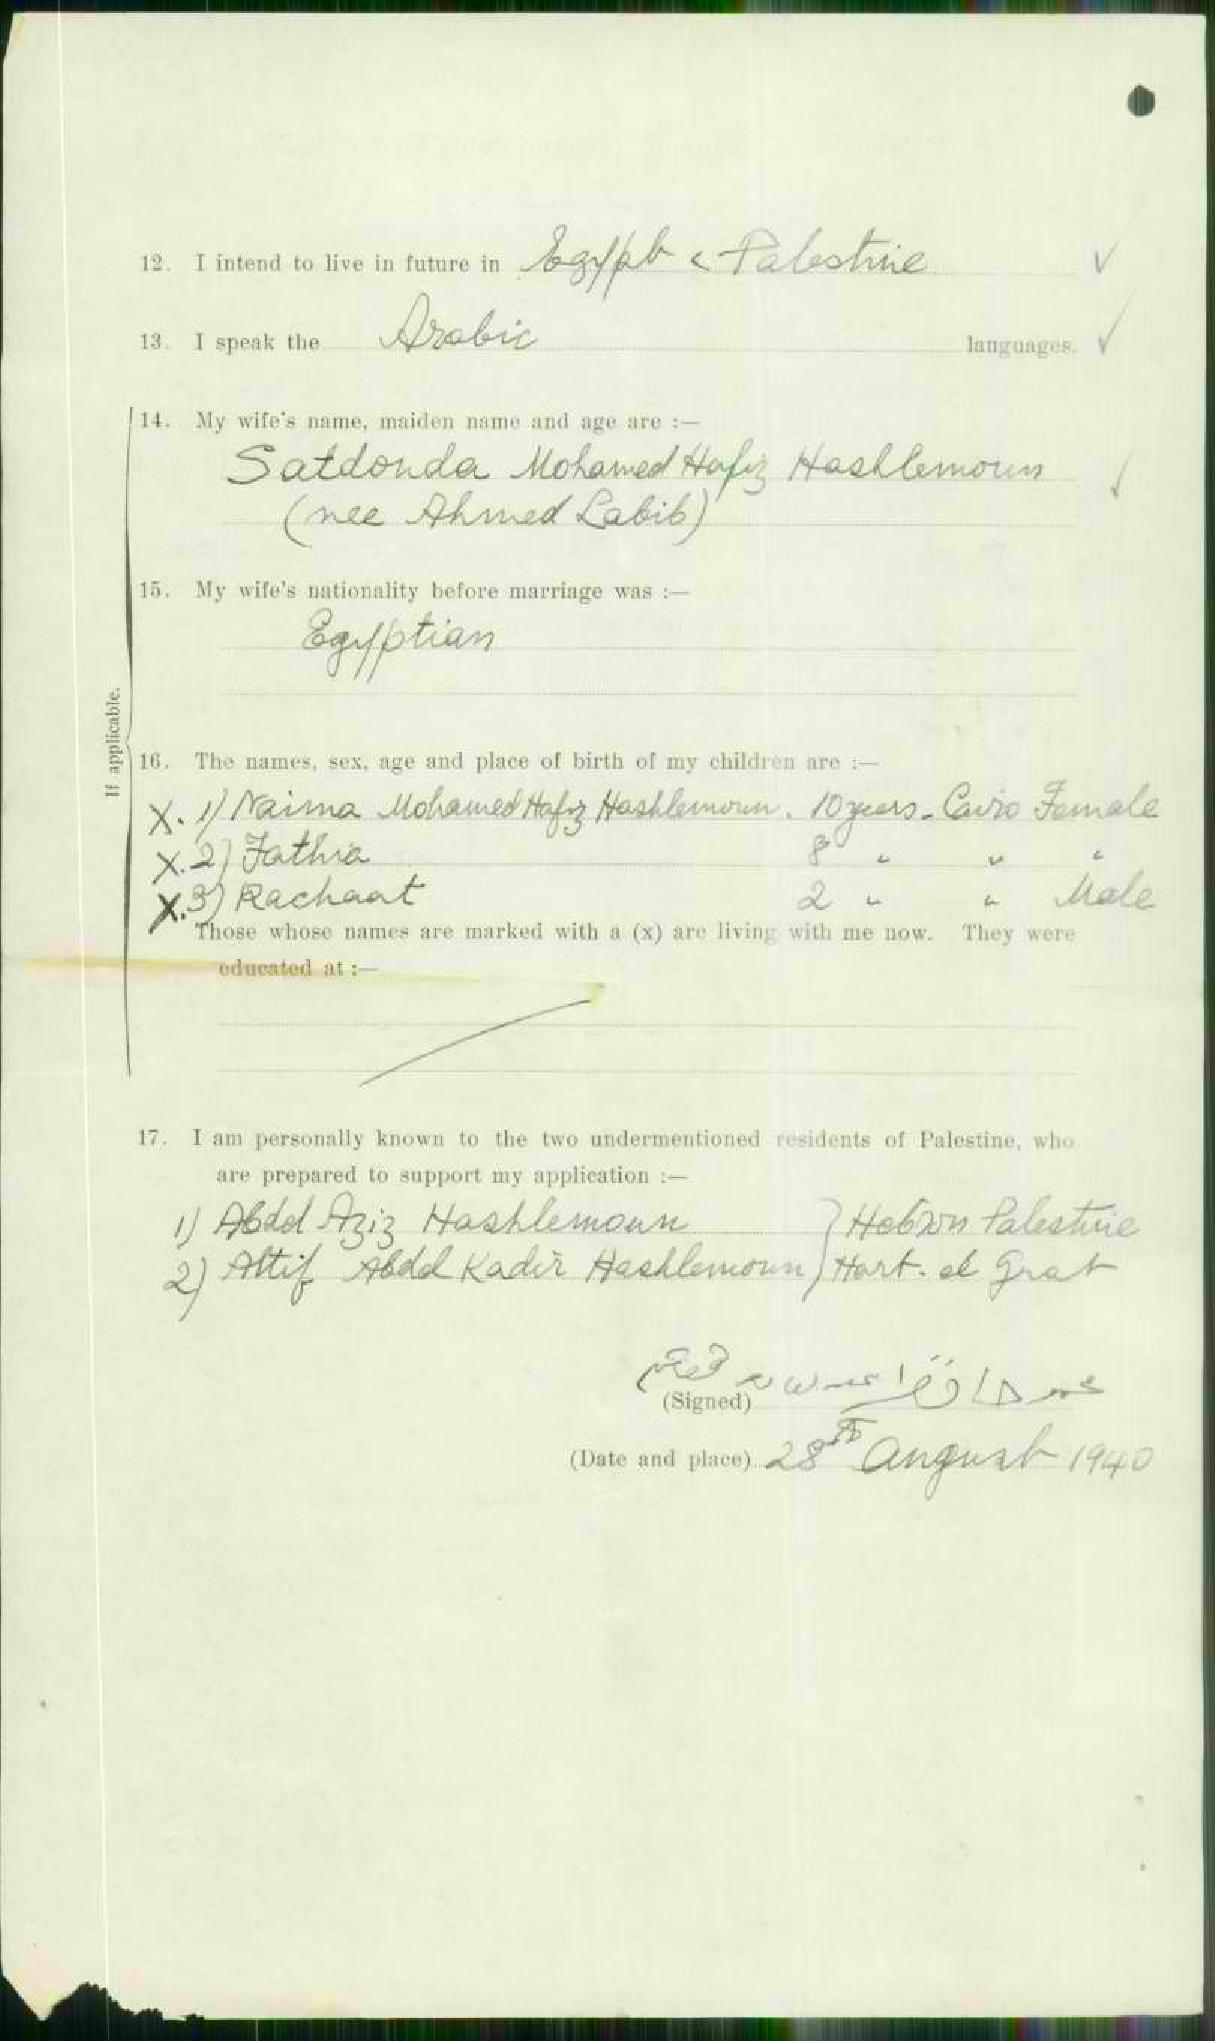 12. I intend to live in future in Egypt & Palestine
13. I speak the Arabic languages.
14. My wife's name, maiden name and age are :—
Satdonda Mohamed Hafiz Hashlemoun
(nee Ahmed Labib)
15. My wife's nationality before marriage was :—
Egyptian
If applicable.
16. The names, sex, age and place of birth of my children are :—
X. 1) Naima Mohamed Hafiz Hashlemoun. 10 years - Cairo Female
X. 2) Fathia 8 " " "
X. 3) Rachaat 2 " " Male
Those whose names are marked with a (x) are living with me now. They were
educated at :—
17. I am personally known to the two undermentioned residents of Palestine, who
are prepared to support my application :—
1) Abdel Aziz Hashlemoun } Hebron Palestine
2) Attif Abdel Kadir Hashlemoun } Hart. el Grat
(Signed)
(Date and place) 28th August 1940